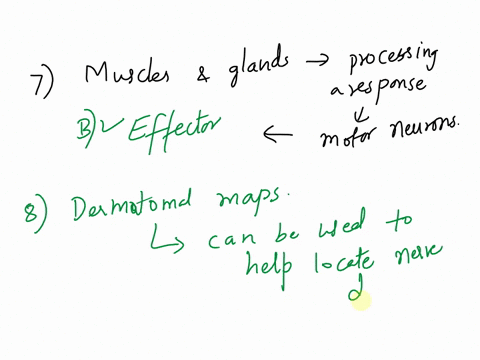 7) Muscles & glands → processing
a response
↓
B) ✓ Effector ← motor neurons.
8) Dermatomal maps.
↳ can be used to
help locate nerve
d